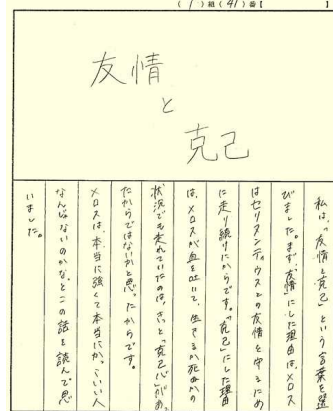 (1)組(41)番【 】
友情
と
克己
私は、「友情と克己」という言葉を選
びました。まず、「友情」にした理由は、メロス
はセリヌンティウスとの友情を守るため
に走り続けたからです。「克己」にした理由
は、メロスが血を吐いて、生きるか死ぬかの
状況でも走れていたのは、きっと「克己心」があっ
たからではないかと思ったからです。
メロスは、本当に強くて本当にかっこいい人
なんじゃないのかな、とこの話を読んで思
いました。